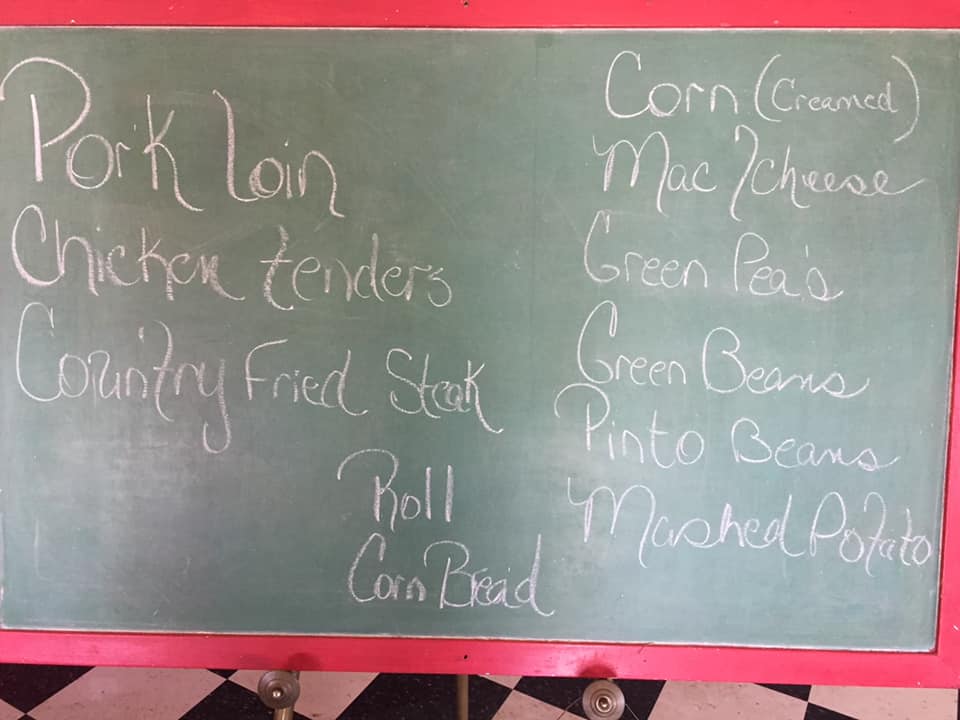 Pork loin
Chicken tenders
Country Fried Steak
Roll
Corn Bread
Corn (Creamed)
Mac & cheese
Green Pea's
Green Beans
Pinto Beans
Mashed Potato